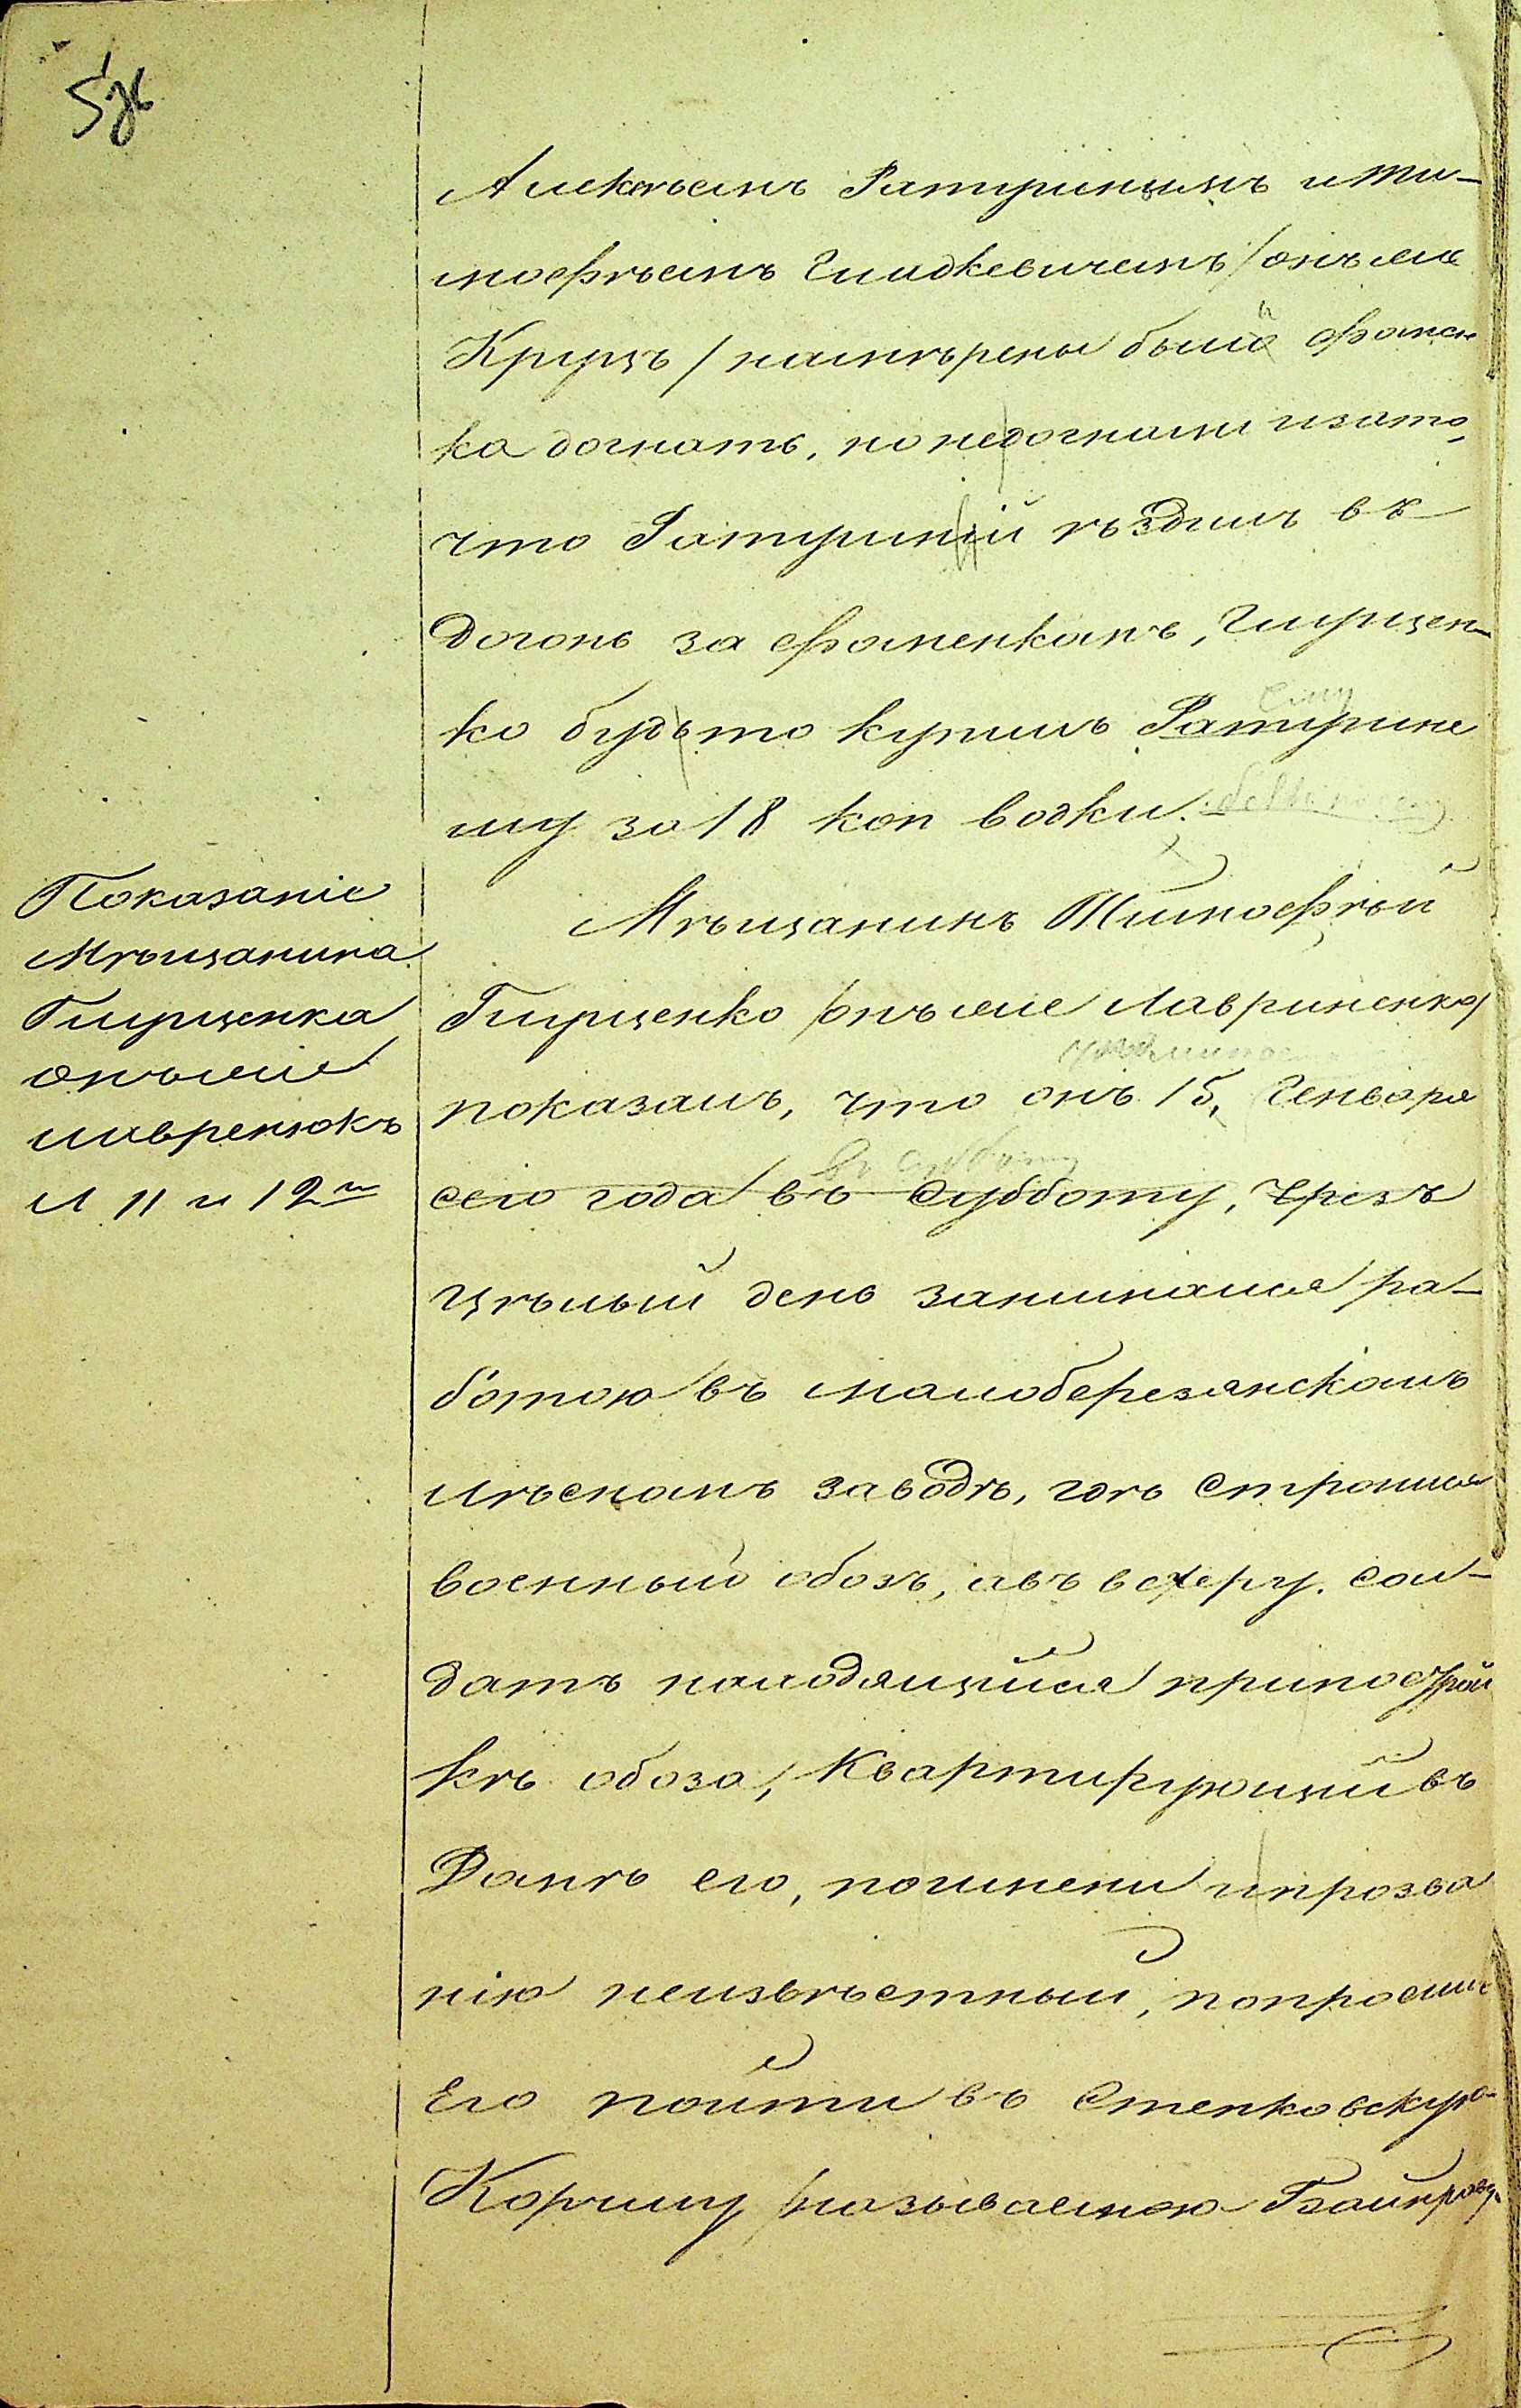 Алексѣемъ Ратуринцимъ и Ти-
мофѣемъ Гладкевичемъ /онъ же
Круцъ/ намѣрены были Фомен
ка догнать, но недогнали и за то,
что Ратуриный ѣздилъ въ
догонь за Фоменкомъ, Глущен-
ко будьто купилъ Ратурине
му за 18 коп водки.
Показаніе
Мѣщанина
Глущенка
онъ же
Лавренюкъ
Л 11 и 12
Мѣщанинъ Тимофѣй
Глущенко /онъ же Лавриненко/
показалъ, что онъ 15, Генваря
сего года въ Субботу, чрезъ
цѣлый день занимался ра-
ботою въ малоберезянскомъ
лѣсномъ заводѣ, гдѣ строился
военный обозъ, а въ вечеру сол-
датъ находящійся при построй
кѣ обоза, Квартирующій въ
Домѣ его, по имени и прозва
нію неизвѣстный, попросилъ
Его пойти въ Стенковскую
Корчму /называемою